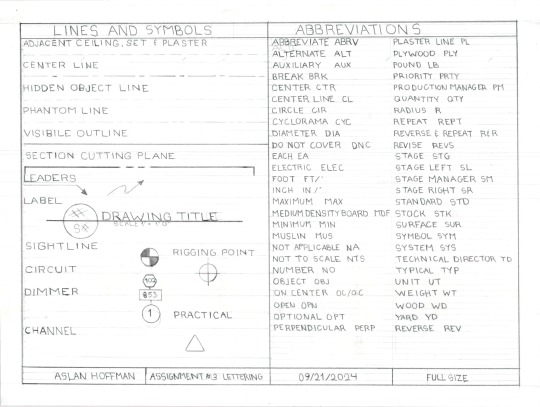 LINES AND SYMBOLS
ADJACENT CEILING, SET & PLASTER
CENTER LINE
HIDDEN OBJECT LINE
PHANTOM LINE
VISIBILE OUTLINE
SECTION CUTTING PLANE
LEADERS
LABEL
DRAWING TITLE
SIGHTLINE
RIGGING POINT
CIRCUIT
102
DIMMER
853
1
PRACTICAL
CHANNEL
ABBREVIATIONS
ABBREVIATE ABRV
ALTERNATE ALT
AUXILIARY AUX
BREAK BRK
CENTER CTR
CENTER LINE CL
CIRCLE CIR
CYCLORAMA CYC
DIAMETER DIA
DO NOT COVER DNC
EACH EA
ELECTRIC ELEC
FOOT FT/'
INCH IN/"
MAXIMUM MAX
MEDIUM DENSITY BOARD MDF
MINIMUM MIN
MUSLIN MUS
NOT APPLICABLE NA
NOT TO SCALE NTS
NUMBER NO
OBJECT OBJ
ON CENTER OC/O.C
OPEN OPN
OPTIONAL OPT
PERPENDICULAR PERP
PLASTER LINE PL
PLYWOOD PLY
POUND LB
PRIORITY PRTY
PRODUCTION MANAGER PM
QUANTITY QTY
RADIUS R
REPEAT REPT
REVERSE & REPEAT R&R
REVISE REVS
STAGE STG
STAGE LEFT SL
STAGE MANAGER SM
STAGE RIGHT SR
STANDARD STD
STOCK STK
SURFACE SUR
SYMBOL SYM
SYSTEM SYS
TECHNICAL DIRECTOR TD
TYPICAL TYP
UNIT UT
WEIGHT WT
WOOD WD
YARD YD
REVERSE REV
ASLAN HOFFMAN
ASSIGNMENT #13 LETTERING
09/21/2024
FULL SIZE